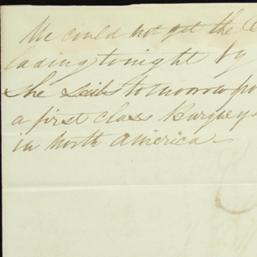 We could not get the
lading tonight by
She Sails tomorrow
a first class Barque
in North America